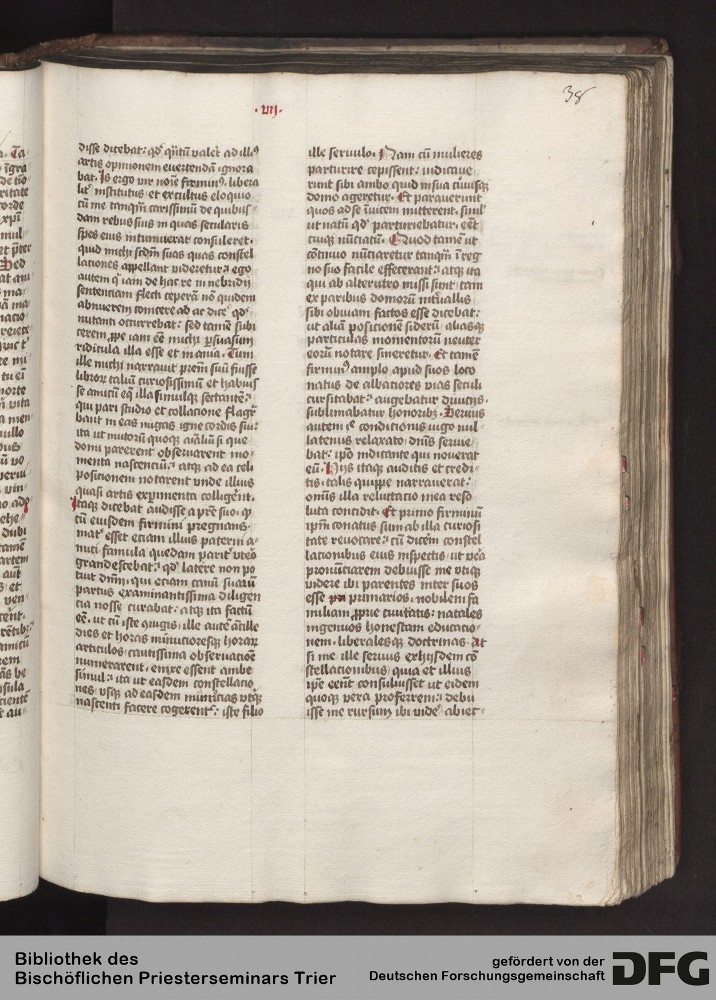 38
·vij·
disse dicebat: qd' qͣntū valet ad illꝰ
artis opinionem evertendā ignora
bat. Is ergo vir noīe firminꝰ. libera
litͬ institutus et excultus eloquio
cū me tamqͣm carissimū de quibus
dam rebus suis in quas secularis
spes eius intumuerat consuleret.
quid michi scdm suas quas constel
lationes appellant videretur: ego
autem qͥ iam de hac re in nebridij
sententiam flecti ceperā nō quidem
abnuerem conicere ad ac dicē qd'
nutanti occurrebat: sed tamē subi
cerem ꝓpe iam eē michi ꝑsuasum
ridicula illa esse et inania. Tum
ille michi narravit prēm suū fuisse
libroꝝ talium curiosissimū et habuisse
se amicū eqͣ illa simulqꝫ sectantē:
qui pari studio et collatione flagr̄
bant in eas nugas igne cordis sui:
ita ut mutorū quoqꝫ aīaliū si que
domi parerent observarent mo
menta nascenciū: atqꝫ ad ea celi
positionem notarent unde illius
quasi artis exꝑimenta colligēt.
Itaqꝫ dicebat audisse a prē suo. qͥ
cū eiusdem firmini pregnans
matͬ esset etiam illius paterni a
mici famula quedam paritͬ utero
grandescebat: qd' latere non po
tuit dn̄m. qui eciam canū suarū
partus examinantissima diligen
cia nosse curabat. atqꝫ ita factū
eē. ut cū iste ɔiugis. ille autē ancille
dies et horas minucioresqꝫ horaꝝ
articulos. cautissima observatiōe
numerarent. enixe essent ambe
simul: ita ut easdem constellatio
nes usqꝫ ad easdem minucias utqꝫ
nascenti facere cogerentͬ: iste filio
ille servulo. Nam cū mulieres
parturire cepissent: indicave
runt sibi ambo quid in sua cuiusqꝫ
domo ageretur. Et paraverunt
quos ad se īvicem mitterent. simul
ut natū qd' parturiebatur. eēt
cuiqꝫ nūciatū. Quod tamē ut
cōtinuo nūciaretur tamqͣm ī reg
no suo facile effecerant: atqꝫ ita
qui ab alterutro missi sunt tam
ex paribus domorū intͬvallis
sibi obviam factos esse dicebat:
ut aliā positionē siderū. aliasqꝫ
particulas momentorū neuter
eorū notare sineretur. Et tamē
firminꝰ amplo apud suos loco
natus de albatiores vias seculi
cursitabat: augebatur divicijs.
sublimabatur honoribꝫ. Servus
autem iͦ condicionis iugo nul
latenus relaxato. dn̄is servie
bat: ipō indicante qui noverat
eū. Hijs itaqꝫ auditis et credi
tis. talis quippe narraverat:
omīs illa reluctacio mea reso
luta concidit. Et primo firminū
ipm̄ conatus sum ab illa curiosi
tate revocare: cū dicēm constel
lationibus eius inspectis. ut vera
pronūciarem debuisse me utiqꝫ
videre ibi parentes inter suos
esse primarios. nobilem fa
miliam ꝓprie civitatis: natales
ingenuos honestam educatio
nem. liberalesqꝫ doctrinas. At
si me ille servus ex hijsdem cō
stellationibus quia et illius
ipē eēnt consuluisset ut eidem
quoqꝫ vera proferrem: debu
isse me rursum ibi videͬ abiec
Bibliothek des
Bischöflichen Priesterseminars Trier
gefördert von der
Deutschen Forschungsgemeinschaft
DFG